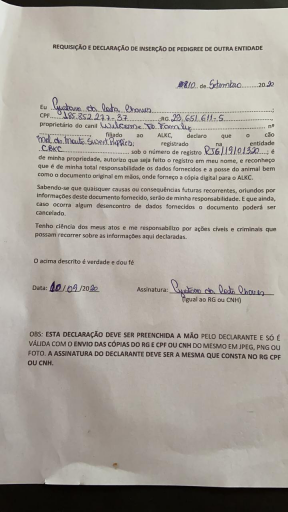 REQUISIÇÃO E DECLARAÇÃO DE INSERÇÃO DE PEDIGREE DE OUTRA ENTIDADE
de Setembro 2020
Eu Gustavo da
CPF 185.852.277-37 RG 29.651.611-5
proprietário do canil Welcome To Family nº
filiado ao ALKC, declaro que o cão
registrado na entidade
CBKC sob o número de registro é
de minha propriedade, autorizo que seja feito o registro em meu nome, e reconheço
que é de minha total responsabilidade os dados fornecidos e a posse do animal bem
como o documento original em mãos, onde forneço o cópia digital para o ALKC.
Sabendo-se que quaisquer causas ou consequências futuras recorrentes, oriundos por
informações deste documento fornecido, serão de minha responsabilidade. E que ainda,
caso ocorra algum desencontro de dados fornecidos o documento poderá ser
cancelado.
Tenho ciência dos meus atos e me responsabilizo por ações cíveis e criminais que
possam recorrer sobre as informações aqui declaradas.
O acima descrito é verdade e dou fé.
Data: 10/09/2020 Assinatura: Gustavo da
(Igual ao RG ou CNH)
OBS: ESTA DECLARAÇÃO DEVE SER PREENCHIDA A MÃO PELO DECLARANTE E SÓ É
VÁLIDA COM O ENVIO DAS CÓPIAS DO RG E CPF OU CNH DO MESMO EM JPEG, PNG OU
FOTO. A ASSINATURA DO DECLARANTE DEVE SER A MESMA QUE CONSTA NO RG CPF
OU CNH.